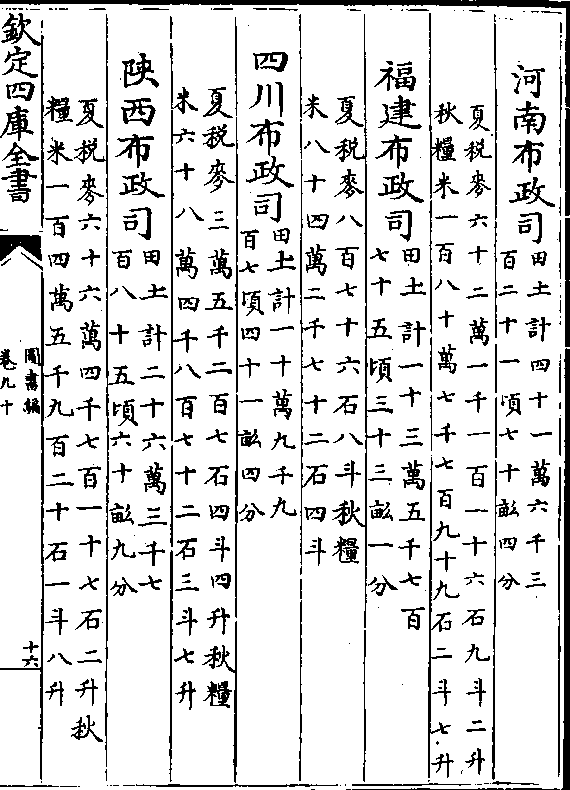 河南布政司田土計四十一萬六千三
百二十一頃七十畝四分
夏税麥六十二萬一千一百一十六石九斗二升
秋糧米一百八十萬七千七百九十九石二斗七升
福建布政司田土計一十三萬五千七百
七十五頃三十三畝一分
夏税麥八百七十六石八斗秋糧
米八十四萬二千七十二石四斗
四川布政司田土計一十萬九千九
百七頃四十一畝四分
夏税麥三萬五千二百七石四斗四升秋糧
米六十八萬四千八百七十二石三斗七升
陜西布政司田土計二十六萬三千七
百八十五頃六十畝九分
夏税麥六十六萬四千七百一十七石二升秋
糧米一百四萬五千九百二十石一斗八升
欽定四庫全書
圖書編
卷九十
十六